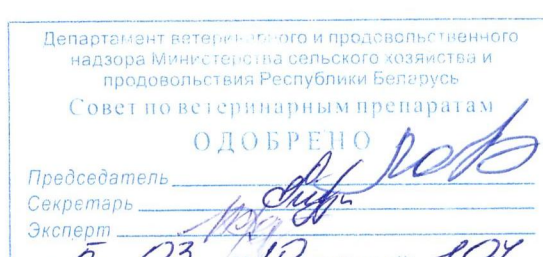 Департамент ветеринарного и продовольственного
надзора Министерства сельского хозяйства и
продовольствия Республики Беларусь
Совет по ветеринарным препаратам
ОДОБРЕНО
Председатель
Секретарь
Эксперт
03